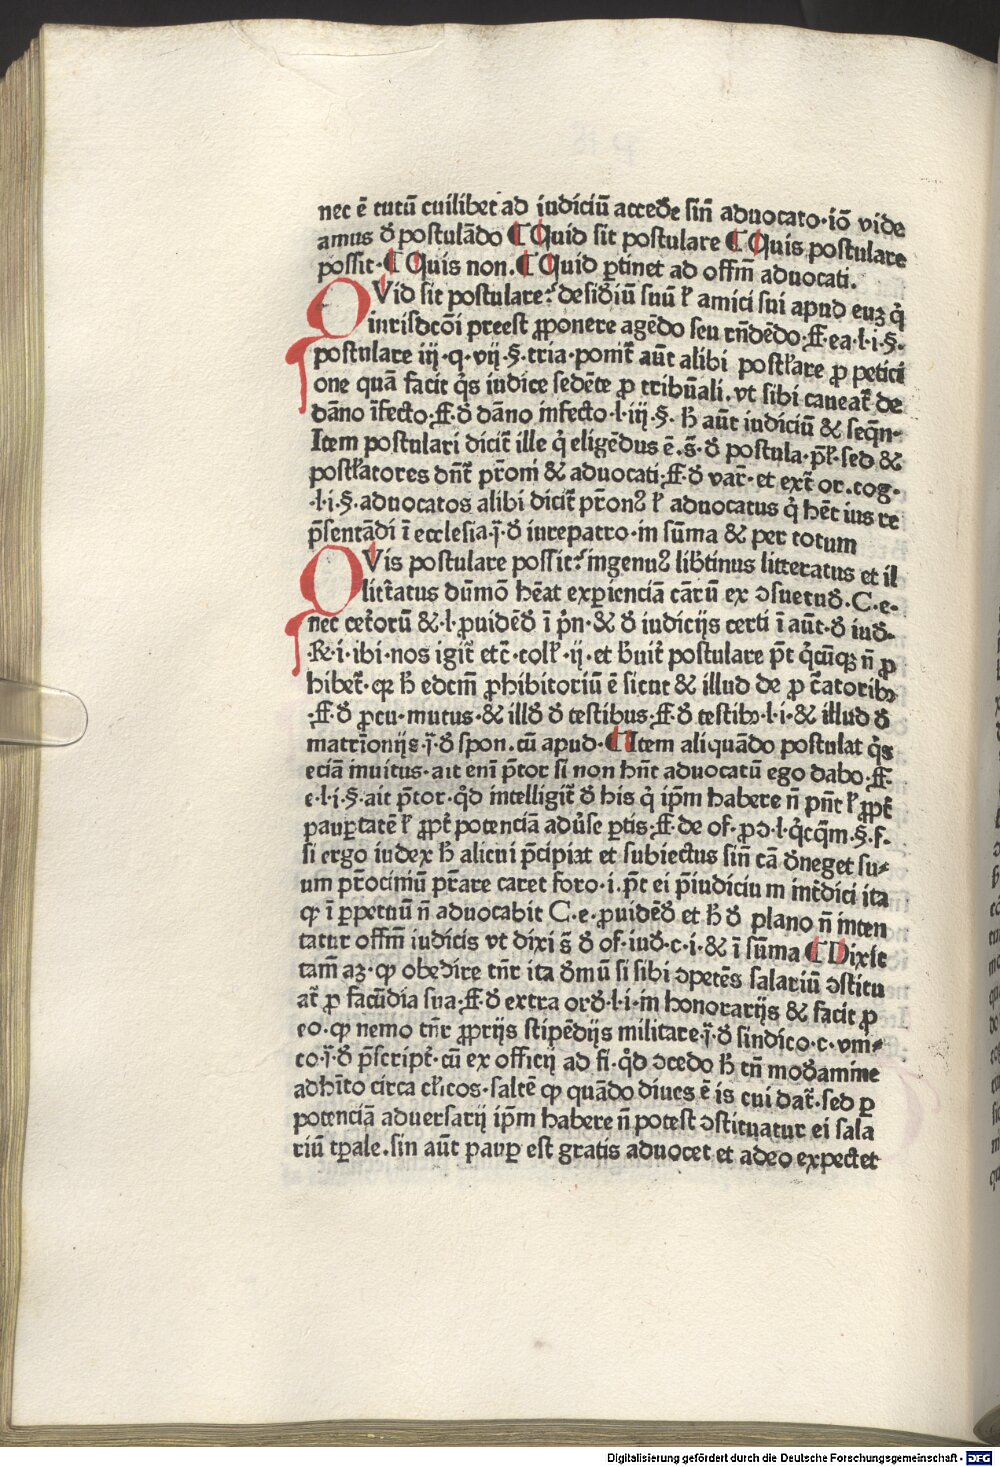 nec ē tutū cuilibet ad iudiciū accede̅ sin̄ aduocato·iō vide
amus đ postulādo ¶ Quid sit postulare ¶ Quis postulare
possit·¶ Quis non.¶ Quid ꝑtinet ad offm̄ aduocati.
QVid sit postulare? desiđiū suū ł amici sui apud euꝫ q̇
iurisdcōi preest ꝓponere agēdo seu rn̄dēdo·ff·ea·l·i·§·
postulare iij·q·vij·§·tria·ponit̄ aūt alibi postłare ꝓ petici
one quā facit q̇s iudice sedēte ꝓ tribūali.vt sibi caueat̄ de
dāno īfecto·ff·đ dāno infecto·l·iij·§·ħ aūt iudiciū & seqn̄·
Item postulari dicit̄ ille q̇ eligēdus ē·s̄·đ postula·p̄ł·sed &
postłatores dn̄t̄ pr̄oni & aduocati·ff·đ var̄·et ext̄ or·cog·
·l·i·§·aduocatos alibi dicit̄ pr̄onꝰ ł aduocatus q̇ hēt ius re
p̄sentādi ī ecclesia·j̄·đ iurepatro·in sūma & per totum
QVis postulare possit? ingenuꝰ lib̄tinus litteratus et il
litt̄atus dūmō hēat exꝑienciā cārū ex ɔsuetuđ·C·e·
nec cet̄orū & ·l·ꝓuidēđ ī p̄n·& đ iudicijs certi ī aūt·đ iuđ·
·R·i·ibi·nos igit̄ etc̄·coll̄·ij·et b̄uit̄ postulare p̄t q̇cūqꝫ n̄ ꝓ
hibet̄·qꝫ ħ edcm̄ ꝓhibitoriū ē sicut & illud de ꝓcātoribꝫ
·ff·đ ꝓcu·mutus·& illđ đ testibus·ff·đ testibꝫ·l·i·& illud đ
matrīonijs·j̄·đ spon·cū apud·¶ Item aliquādo postulat q̇s
eciā inuitus·ait enī p̄tor si non hn̄t aduocatū ego dabo·ff·
e·l·i·§·ait p̄tor·q̇d intelligit̄ đ his q̇ ip̄m habere n̄ pn̄t ł ꝓpt̄
pauꝑtatē ł ꝓpt̄ potenciā adu̇se ꝑtis·ff·de of·ꝓɔ·l·q̇cq̄m·§·f·
si ergo iudex ħ alicui p̄cipiat et subiectus sin̄ cā đneget su⸗
um pr̄ociniū pr̄are caret foro·i·p̄t ei p̄iudicium int̄dici ita
ꝙ ī ꝑpetuū n̄ aduocabit C·e·ꝓuidēđ et ħ đ plano n̄ inten
tatur offm̄ iudicis vt dixi s̄ đ of·iuđ·c·i·& ī sūma ¶ Dixit
tam̄ aꝫ·ꝙ obedire tn̄r ita đmū si sibi ɔpetēs salariū ɔstitu
at̄ ꝓ facūdia sua·ff·đ extra orđ·l·i·in honorarijs & facit ꝓ
eo·ꝙ nemo tn̄r ꝓprijs stipēdijs militare·j̄·đ sindico·c·vni⸗
co·j̄·đ p̄script̄·cū ex officij ad fi·q̇d ɔcedo ħ tn̄ mođamine
adhīto circa cłicos·saltē ꝙ quādo diues ē is cui dat̄·sed ꝑ
potenciā aduersarij ip̄m habere n̄ potest ɔstituatur ei sala
riū tꝑale·sin aūt pauꝑ est gratis aduocet et adeo expectet
Digitalisierung gefördert durch die Deutsche Forschungsgemeinschaft - DFG